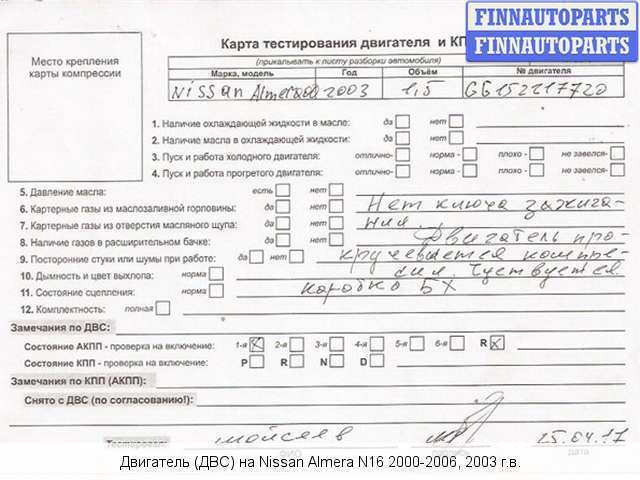 FINNAUTOPARTS
FINNAUTOPARTS
Место крепления
карты компрессии
Карта тестирования двигателя и КП
(прикалывать к листу разборки автомобиля)
Марка, модель Год Объём № двигателя
Nissan Almera 2003 1,5 GG152117720
1. Наличие охлаждающей жидкости в масле: да нет
2. Наличие масла в охлаждающей жидкости: да нет
3. Пуск и работа холодного двигателя: отлично- норма - плохо - не завелся-
4. Пуск и работа прогретого двигателя: отлично- норма - плохо - не завелся-
5. Давление масла: есть нет
6. Картерные газы из маслозаливной горловины: да нет Нет ключа зажига-
7. Картерные газы из отверстия масляного щупа: да нет ния. Двигатель про-
8. Наличие газов в расширительном бачке: да нет
9. Посторонние стуки или шумы при работе: да нет кручевается компре-
10. Дымность и цвет выхлопа: норма сия. Чуствуется
11. Состояние сцепления: норма коробка 5X
12. Комплектность: полная
Замечания по ДВС:
Состояние АКПП - проверка на включение: 1-я 2-я 3-я 4-я 5-я 6-я R
Состояние КПП - проверка на включение: P R N D
Замечания по КПП (АКПП):
Снято с ДВС (по согласованию!):
Тестировал: Мойсеев 25.04.17
ФИО подпись дата
Двигатель (ДВС) на Nissan Almera N16 2000-2006, 2003 г.в.